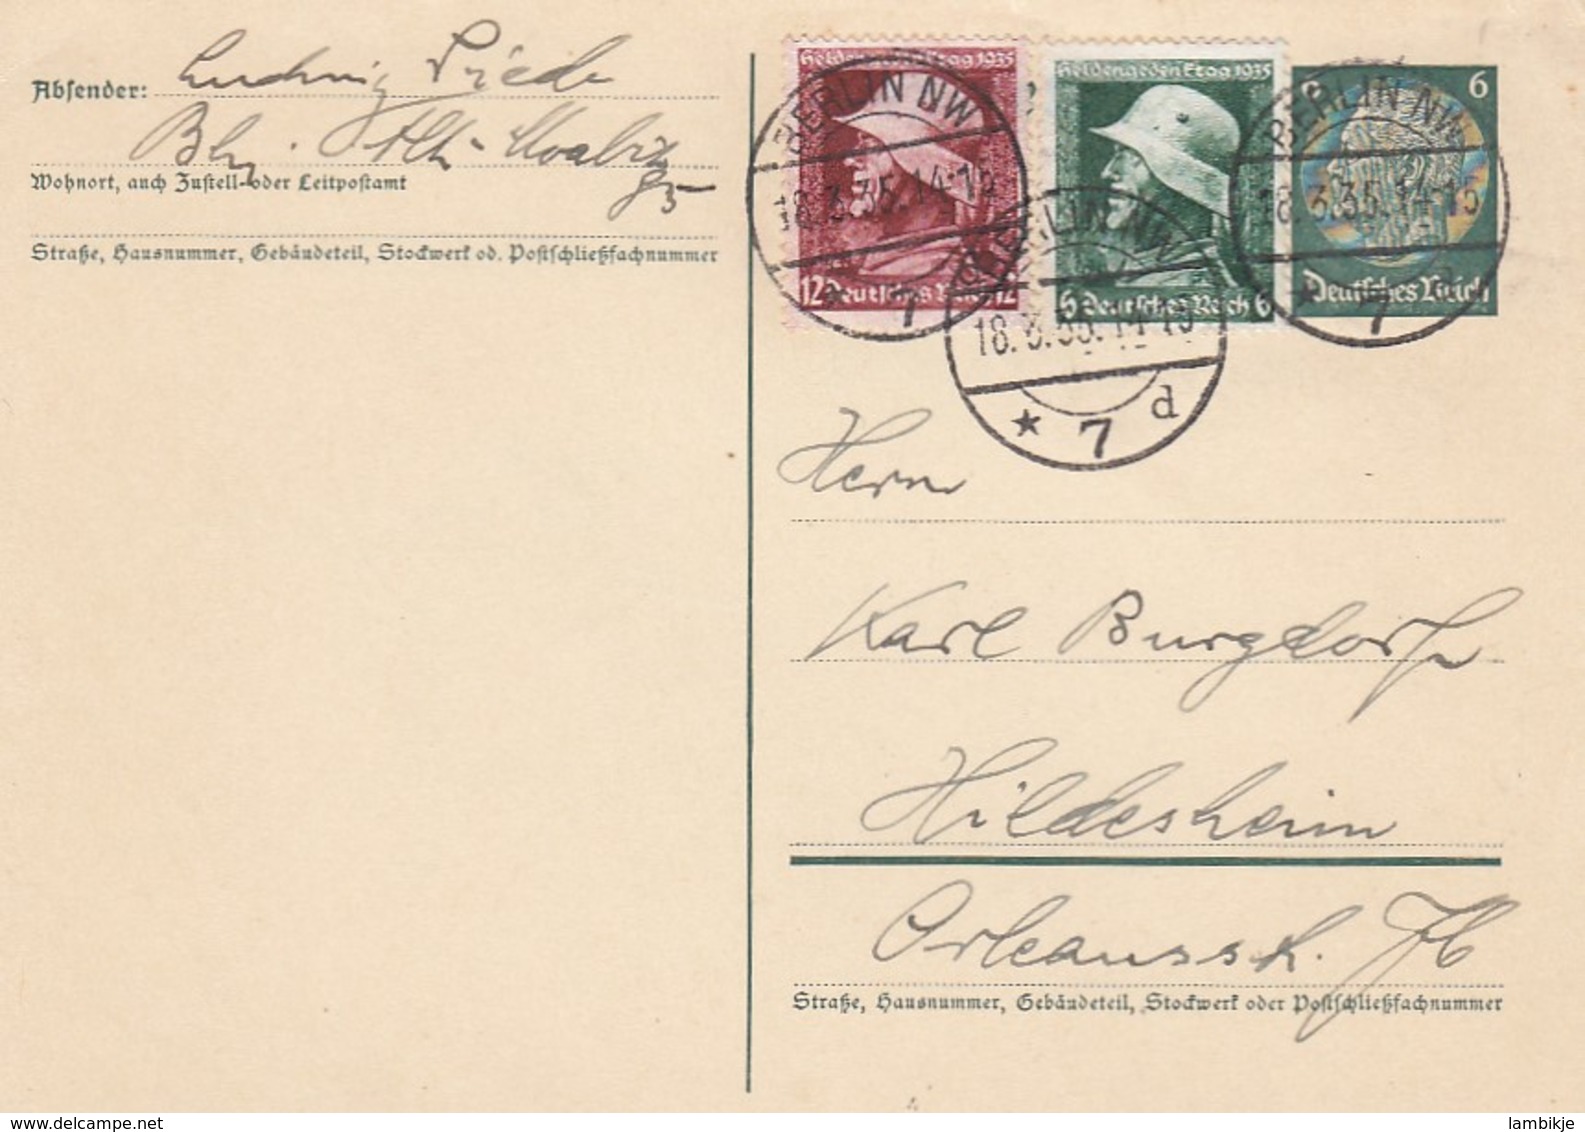 Absender: Ludwig
Wohnort, auch Zustell- oder Leitpostamt
85
Straße, Hausnummer, Gebäudeteil, Stockwerk od. Postschließfachnummer
Heldengedenktag 1935
12 Deutsches Reich 12
Heldengedenktag 1935
6 Deutsches Reich 6
6
Deutsches Reich
BERLIN NW
18.3.35.14-15
* 7
BERLIN NW
18.3.35.14-15
* 7 d
BERLIN NW
18.3.35.14-15
* 7
Herrn
Karl Burgdorf
Hildesheim
Straße, Hausnummer, Gebäudeteil, Stockwerk oder Postschließfachnummer
delcampe.net
lambikje